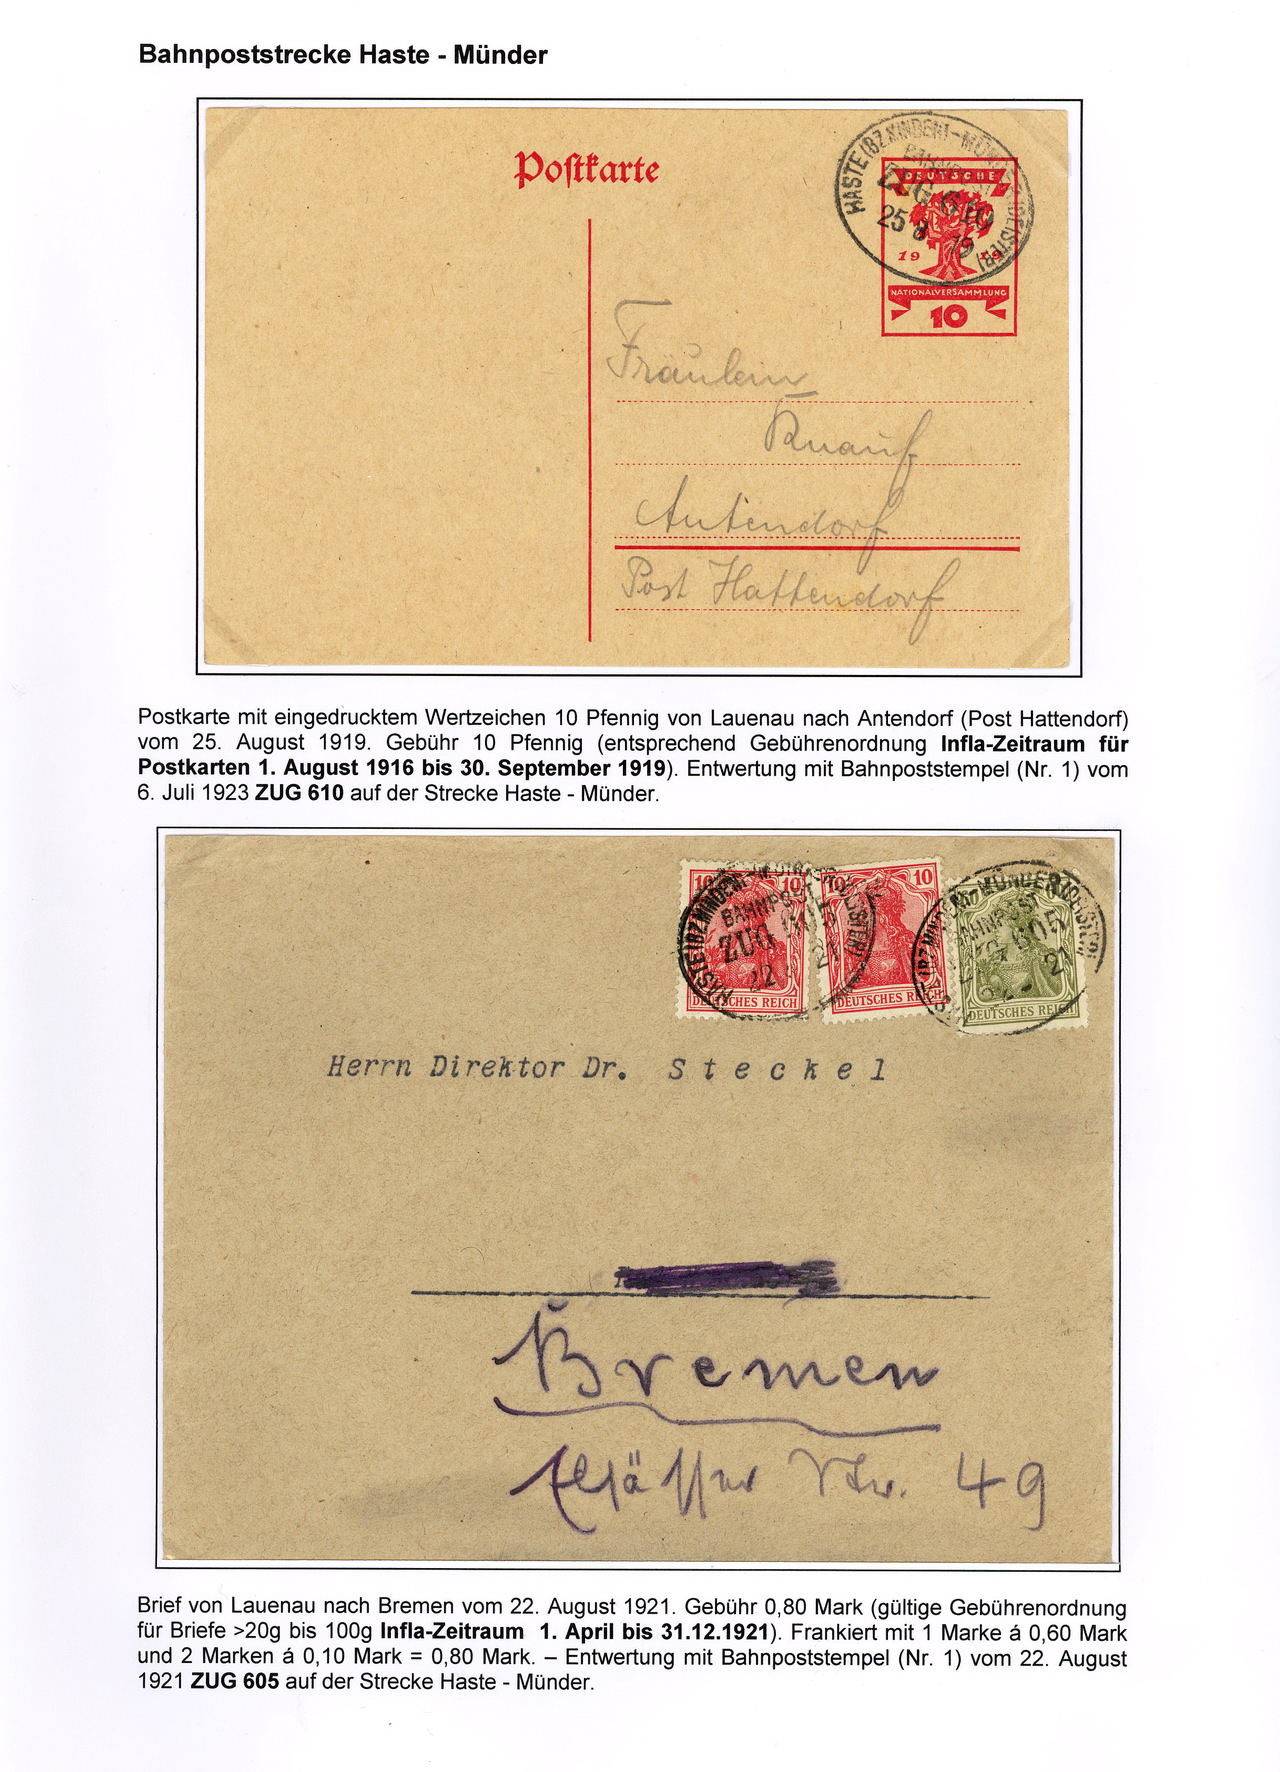 Bahnpoststrecke Haste - Münder
Postkarte
HASTE (BZ.MINDEN) - MÜNDER (DEISTER)
BAHNPOST
ZUG 610
25 8 19
DEUTSCHE
19 19
NATIONALVERSAMMLUNG
10
Fräulein
Knauf
Antendorf
Post Hattendorf
Postkarte mit eingedrucktem Wertzeichen 10 Pfennig von Lauenau nach Antendorf (Post Hattendorf)
vom 25. August 1919. Gebühr 10 Pfennig (entsprechend Gebührenordnung Infla-Zeitraum für
Postkarten 1. August 1916 bis 30. September 1919). Entwertung mit Bahnpoststempel (Nr. 1) vom
6. Juli 1923 ZUG 610 auf der Strecke Haste - Münder.
10 10
DEUTSCHES REICH
10 10
DEUTSCHES REICH
DEUTSCHES REICH
HASTE (BZ.MINDEN) - MÜNDER (DEISTER)
BAHNPOST
ZUG 605
22 21
MÜNDER (DEISTER)
BAHNPOST
ZUG 605
22 21
Herrn Direktor Dr. Steckel
Bremen
Elsässer Str. 49
Brief von Lauenau nach Bremen vom 22. August 1921. Gebühr 0,80 Mark (gültige Gebührenordnung
für Briefe >20g bis 100g Infla-Zeitraum 1. April bis 31.12.1921). Frankiert mit 1 Marke á 0,60 Mark
und 2 Marken á 0,10 Mark = 0,80 Mark. – Entwertung mit Bahnpoststempel (Nr. 1) vom 22. August
1921 ZUG 605 auf der Strecke Haste - Münder.